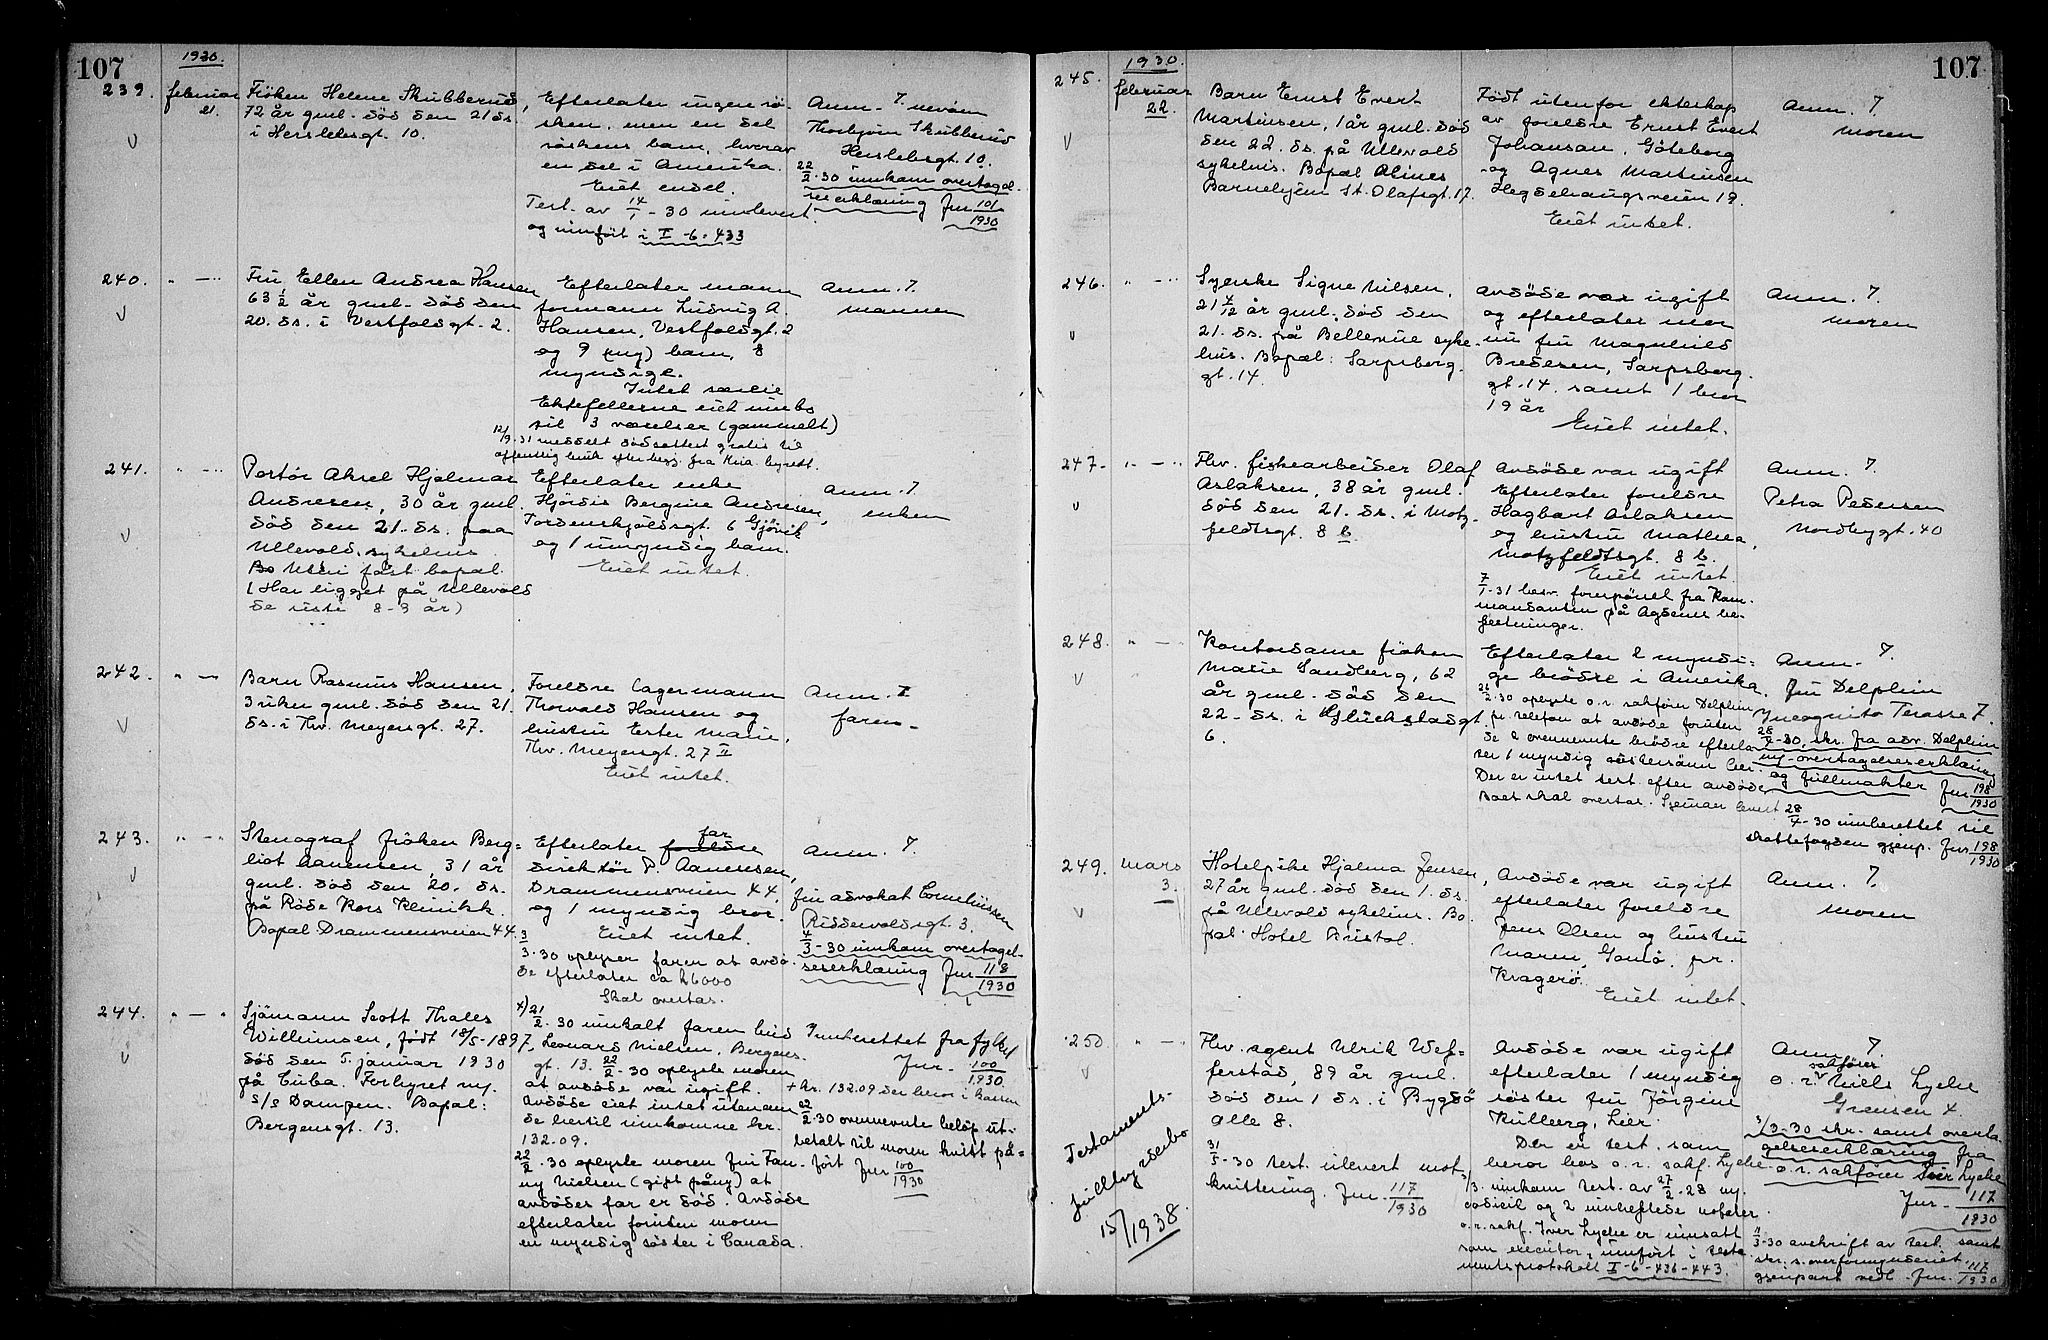 107
1930.
239.
februar
21.
Fröken Helene Skubberud,
72 år gml. död den 21 ds.
i Herslebsgt. 10.
Efterlater ingen sö-
sken, men en del
söskens barn, hvorav
en del i Amerika.
Eiet endel.
Test. av 14/1-30 innlevert
og innfört i I-6-433
Anm. 7. nevöen
Thorbjörn Skubberud
Herslebsgt. 10.
22/2-30 innkom overtagel-
seserklæring Jnr 101/1930
240.
Fru Ellen Andrea Hansen
63 1/2 år gml. död den
20. ds. i Vestfoldgt. 2.
Efterlater mann
formann Ludvig A.
Hansen, Vestfoldgt. 2
og 9 (ny) barn, 8
myndige.
Intet særeie
Ektefellerne eiet innbo
til 3 værelser (gammelt)
12/9-31 meddelt dödsattest gratis til
offentlig bruk efter begj. fra Kria. byrett.
Anm. 7.
mannen
241.
Portör Aksel Hjalmar
Andresen, 30 år gml.
död den 21. ds. paa
Ullevold sykehus.
Bo Uten fast bopæl.
(Har ligget på Ullevold
de siste 8-9 år)
Efterlater enke
Hjördis Bergine Andresen,
Tordenskjoldsgt. 6 Gjövik
og 1 umyndig barn.
Eiet intet.
Anm. 7.
enken
242.
Barn Rasmus Hansen,
3 uker gml. död den 21.
ds. i Thv. Meyersgt. 27.
Foreldre lagermann
Thorvald Hansen og
hustru Ester Marie,
Thv. Meyersgt. 27 II
Eiet intet.
Anm. 7
faren
243.
Stenograf fröken Berg-
liot Aanensen, 31 år
gml. död den 20. ds.
på Röde Kors Klinikk.
Bopæl Drammensveien 44.
Efterlater foreldre far
direktör P. Aanensen,
Drammensveien 44,
og 1 myndig bror.
Eiet intet.
3/3-30 oplyser faren at avdö-
de efterlater ca 26000
Skal overtas.
Anm. 7.
fru advokat Corneliussen
Riddervoldsgt. 3.
4/3-30 innkom overtagel-
seserklæring Jnr 118/1930
244.
Sjömann Scott Thales
Willumsen, födt 18/5-1897,
död den 5. januar 1930
på Cuba. Forhyret m/
s/s Dampen. Bopæl:
Bergensgt. 13.
x) 21/2-30 innkalt faren bud
Leonard Nielsen, Bergens-
gt. 13. 22/2-30 oplyste moren
at avdöde var ugift.
Avdöde eiet intet utenom
de hertil innkomne kr.
132.09.
22/2-30 oplyste moren fru Fan-
ny Nielsen (gift påny) at
avdödes far er död. Avdöde
efterlater foruten moren
en myndig söster i Canada.
Innberettet fra fylket
Jnr. 100/1930
+ kr. 132.09 der beror i kassen
22/2-30 ovennevnte belöp ut-
betalt til moren kvitt på-
fört Jnr 100/1930
107
1930.
245.
februar
22.
Barn Ernst Evert
Martinsen, 1 år gml. död
den 22. ds. på Ullevold
sykehus. Bopæl Olines
Barnehjem St. Olafsgt. 17.
Födt utenfor ekteskap
av foreldre Ernst Evert
Johansan, Göteborg
og Agnes Martinsen
Hegdehaugsveien 19.
Eiet intet.
Anm. 7.
moren
246.
Syerske Signe Nilsen,
21 4/12 år gml. död den
21. ds. på Bellevue syke-
hus. Bopæl: Sarpsborg-
gt. 14.
Avdöde var ugift
og efterlater mor
nu fru Magnhild
Bredesen, Sarpsborg-
gt. 14. samt 1 bror
19 år
Eiet intet.
Anm. 7.
moren
247.
Fhv. fiskearbeider Olaf
Aslaksen, 38 år gml.
död den 21. ds. i Motz-
feldtsgt. 8 b.
Avdöde var ugift
Efterlater foreldre
Hagbart Aslaksen
og hustru Mathea,
Motzfeldtsgt. 8 b.
Eiet intet.
7/1-31 besv. forespörsel fra Kom-
mandanten på Agdenes be-
festninger.
Anm. 7.
Petra Pedersen
Nordbygt. 40
248.
Kontordame fröken
Marie Sandberg, 62
år gml. död den
22. ds. i Glückstadgt.
6.
Efterlater 2 myndi-
ge brödre i Amerika.
26/2-30 oplyste o.r. sakförer Delphin
pr. telefon at avdöde foruten
de 2 ovennevnte brödre efterla-
ter 1 myndig söstersönn her.
Der er intet test. efter avdöde
Boet skal overtas.
Anm. 7.
fru Delphin
Incognito Terasse 7.
28/4-30, skr. fra adv. Delphin
m/ overtagelseserklæring
og fullmakter Jnr 198/1930
28/4-30 innberettet til
skattefogden gjenp. Jnr 198/1930
249.
mars
3.
Hotelpike Hjalma Jensen,
27 år gml. död den 1. ds.
på Ullevold sykehus. Bo-
pæl. Hotel Bristol.
Avdöde var ugift
efterlater foreldre
Jens Olsen og hustru
Maren, Gomö, pr.
Kragerö.
Eiet intet.
Anm. 7.
moren
250
Fhv. agent Ulrik Wef-
ferstad, 89 år gml.
död den 1 ds. i Bygdö
alle 8.
31/5-30 test. utlevert mot
kvittering. Jnr. 117/1930
Testaments-
fullbyrderbo
15/1938.
Avdöde var ugift
efterlater 1 myndig
söster fru Jörgine
Killberg, Lier.
Der er test. som
beror hos o.r. sakf. Lycke
3/3 innkom test. av 27/2-28 m/
codicil og 2 innheftede notater
o.r. sakf. Iver Lycke er innsatt
som executor, innfört i testa-
mentsprotokoll I-6-436-443.
Anm. 7.
o.r. sakförer Niels Lycke
Grensen 4.
3/3-30 skr. samt overta-
gelseserklæring fra
o.r. sakförer Iver Lycke
Jnr. 117/1930
11/3-30 avskrift av test. samt
skr. t. overformynderiet
gjenpart vedl. Jnr. 117/1930